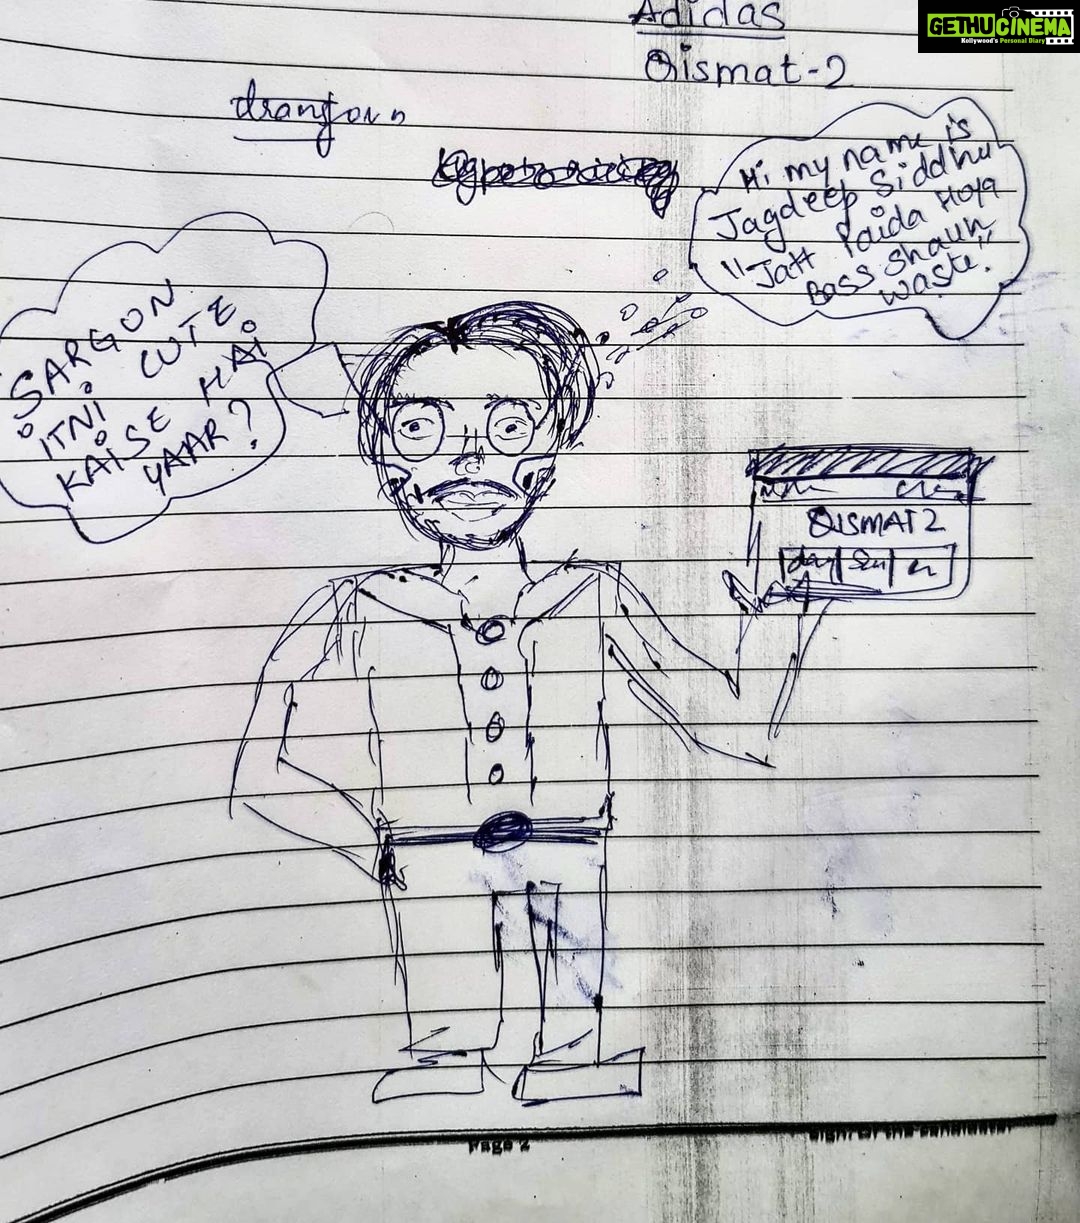 Adidas
Qismat-2
Hi my name is
Jagdeep Siddhu
"Jatt Paida Hoya
Bass Shaun
waste."
SARGUN
iTNi CUTE
KAiSE HAi
YAAR?
QISMAT 2
Page 2
GETHUCINEMA
Kollywood's Personal Diary